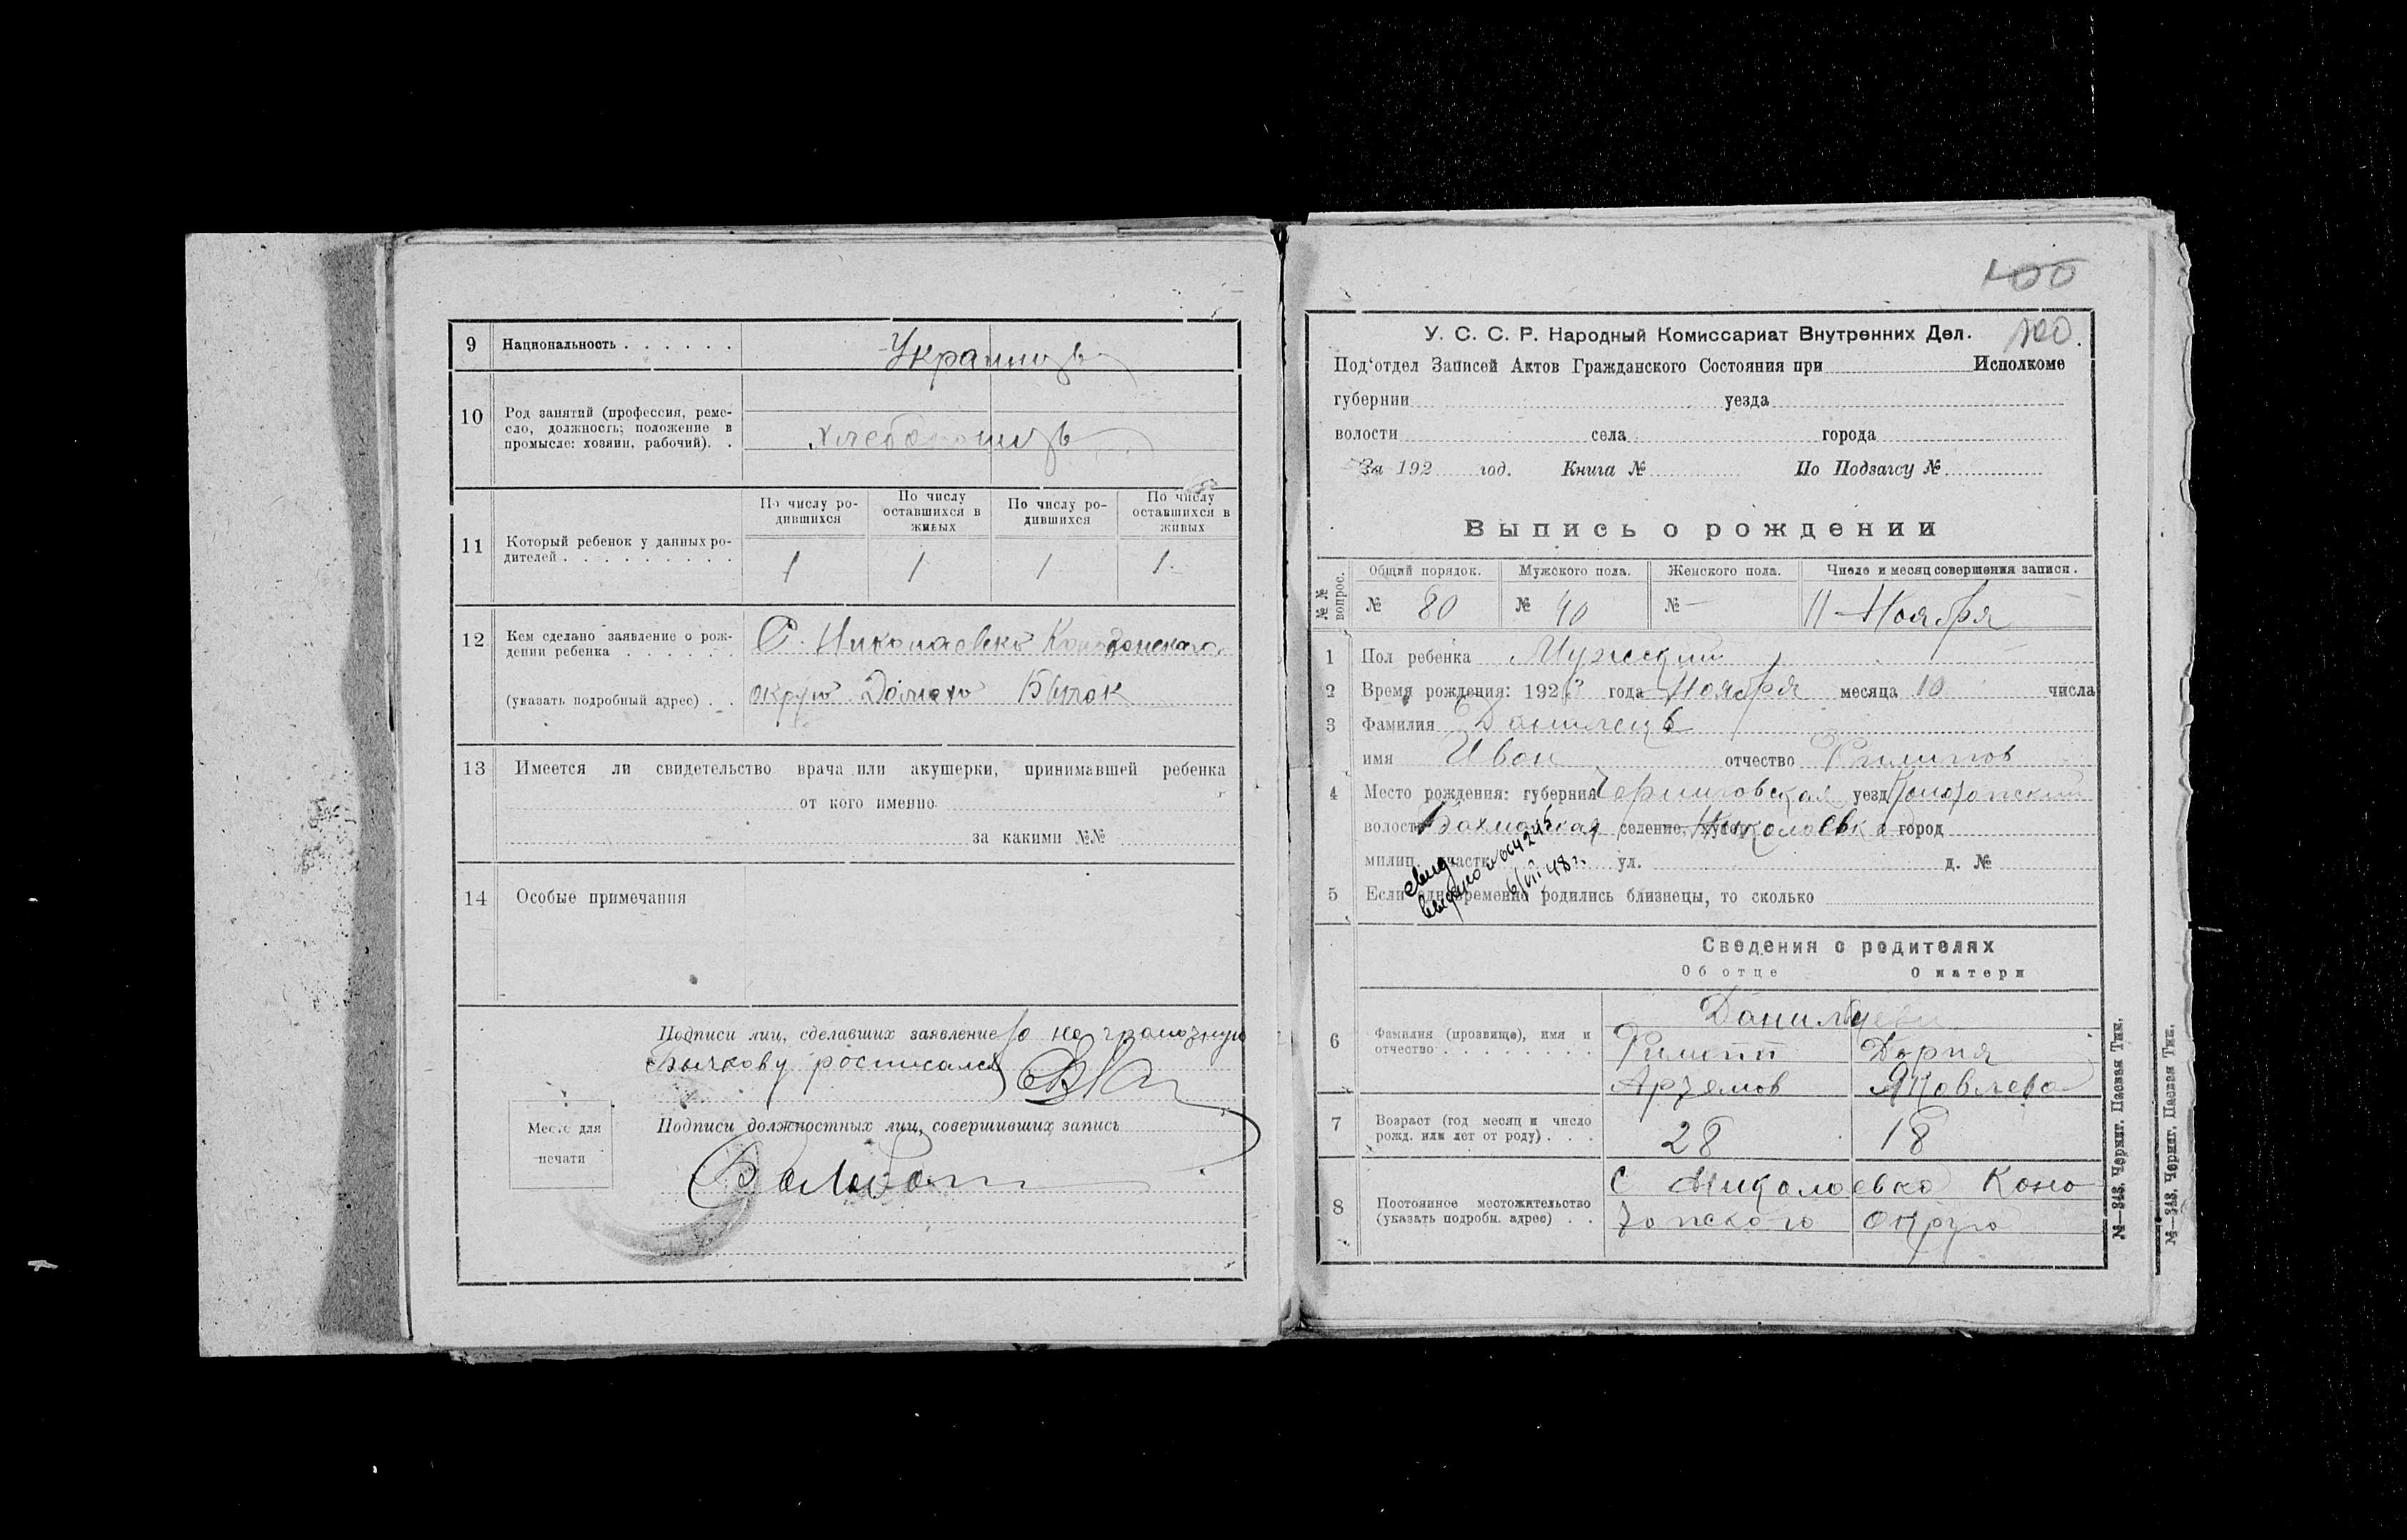 9 Национальность . . . . . .
Украинцъ
10 Род занятий (профессия, реме-
сло, должность; положение в
промысле: хозяин, рабочий). .
хлеборобицъ
11 Который ребенок у данных ро-
дителей . . . . . . . . .
По числу ро-
дившихся
По числу
оставшихся в
живых
По числу ро-
дившихся
По числу
оставшихся в
живых
1 1 1 1
12 Кем сделано заявление о рож-
дении ребенка . . . . . .
(указать подробный адрес) . .
С. Николаевка Конотопского
округа
13 Имеется ли свидетельство врача или акушерки, принимавшей ребенка
от кого именно
за какими №№
14 Особые примечания
Подписи лиц, сделавших заявление за неграмотную
росписался
Подписи должностных лиц, совершивших запись
Место для
печати
100
100.
У. С. С. Р. Народный Комиссариат Внутренних Дел.
Под‘отдел Записей Актов Гражданского Состояния при Исполкоме
губернии уезда
волости села города
За 192 год. Книга № По Подзагсу №
Выпись о рождении
№ № вопрос.
Общий порядок. Мужского пола. Женского пола. Число и месяц совершения записи.
№ 80 № 40 № — 11 Ноября
1 Пол ребенка Мужский
2 Время рождения: 1923 года Ноября месяца 10 числа
3 Фамилия Данилецъ
имя Иван отчество Филипов
4 Место рождения: губерния Черниговская уезд Конотопский
волость Бахмачская селение, хутор Николаевка город
милиц. участк ул. д. №
свид
выдано 6/VII 48 г.
5 Если одновременно родились близнецы, то сколько
Сведения о родителях
Об отце О матери
6 Фамилия (прозвище), имя и
отчество . . . . . . . . .
Филипп Дария
Артемов Яковлева
7 Возраст (год месяц и число
рожд. или лет от роду) . . .
28 18
8 Постоянное местожительство
(указать подробн. адрес) . .
С Николаевка Коно
топского Округа
№—343. Черниг. Паевая Тип.
№—343. Черниг. Паевая Тип.